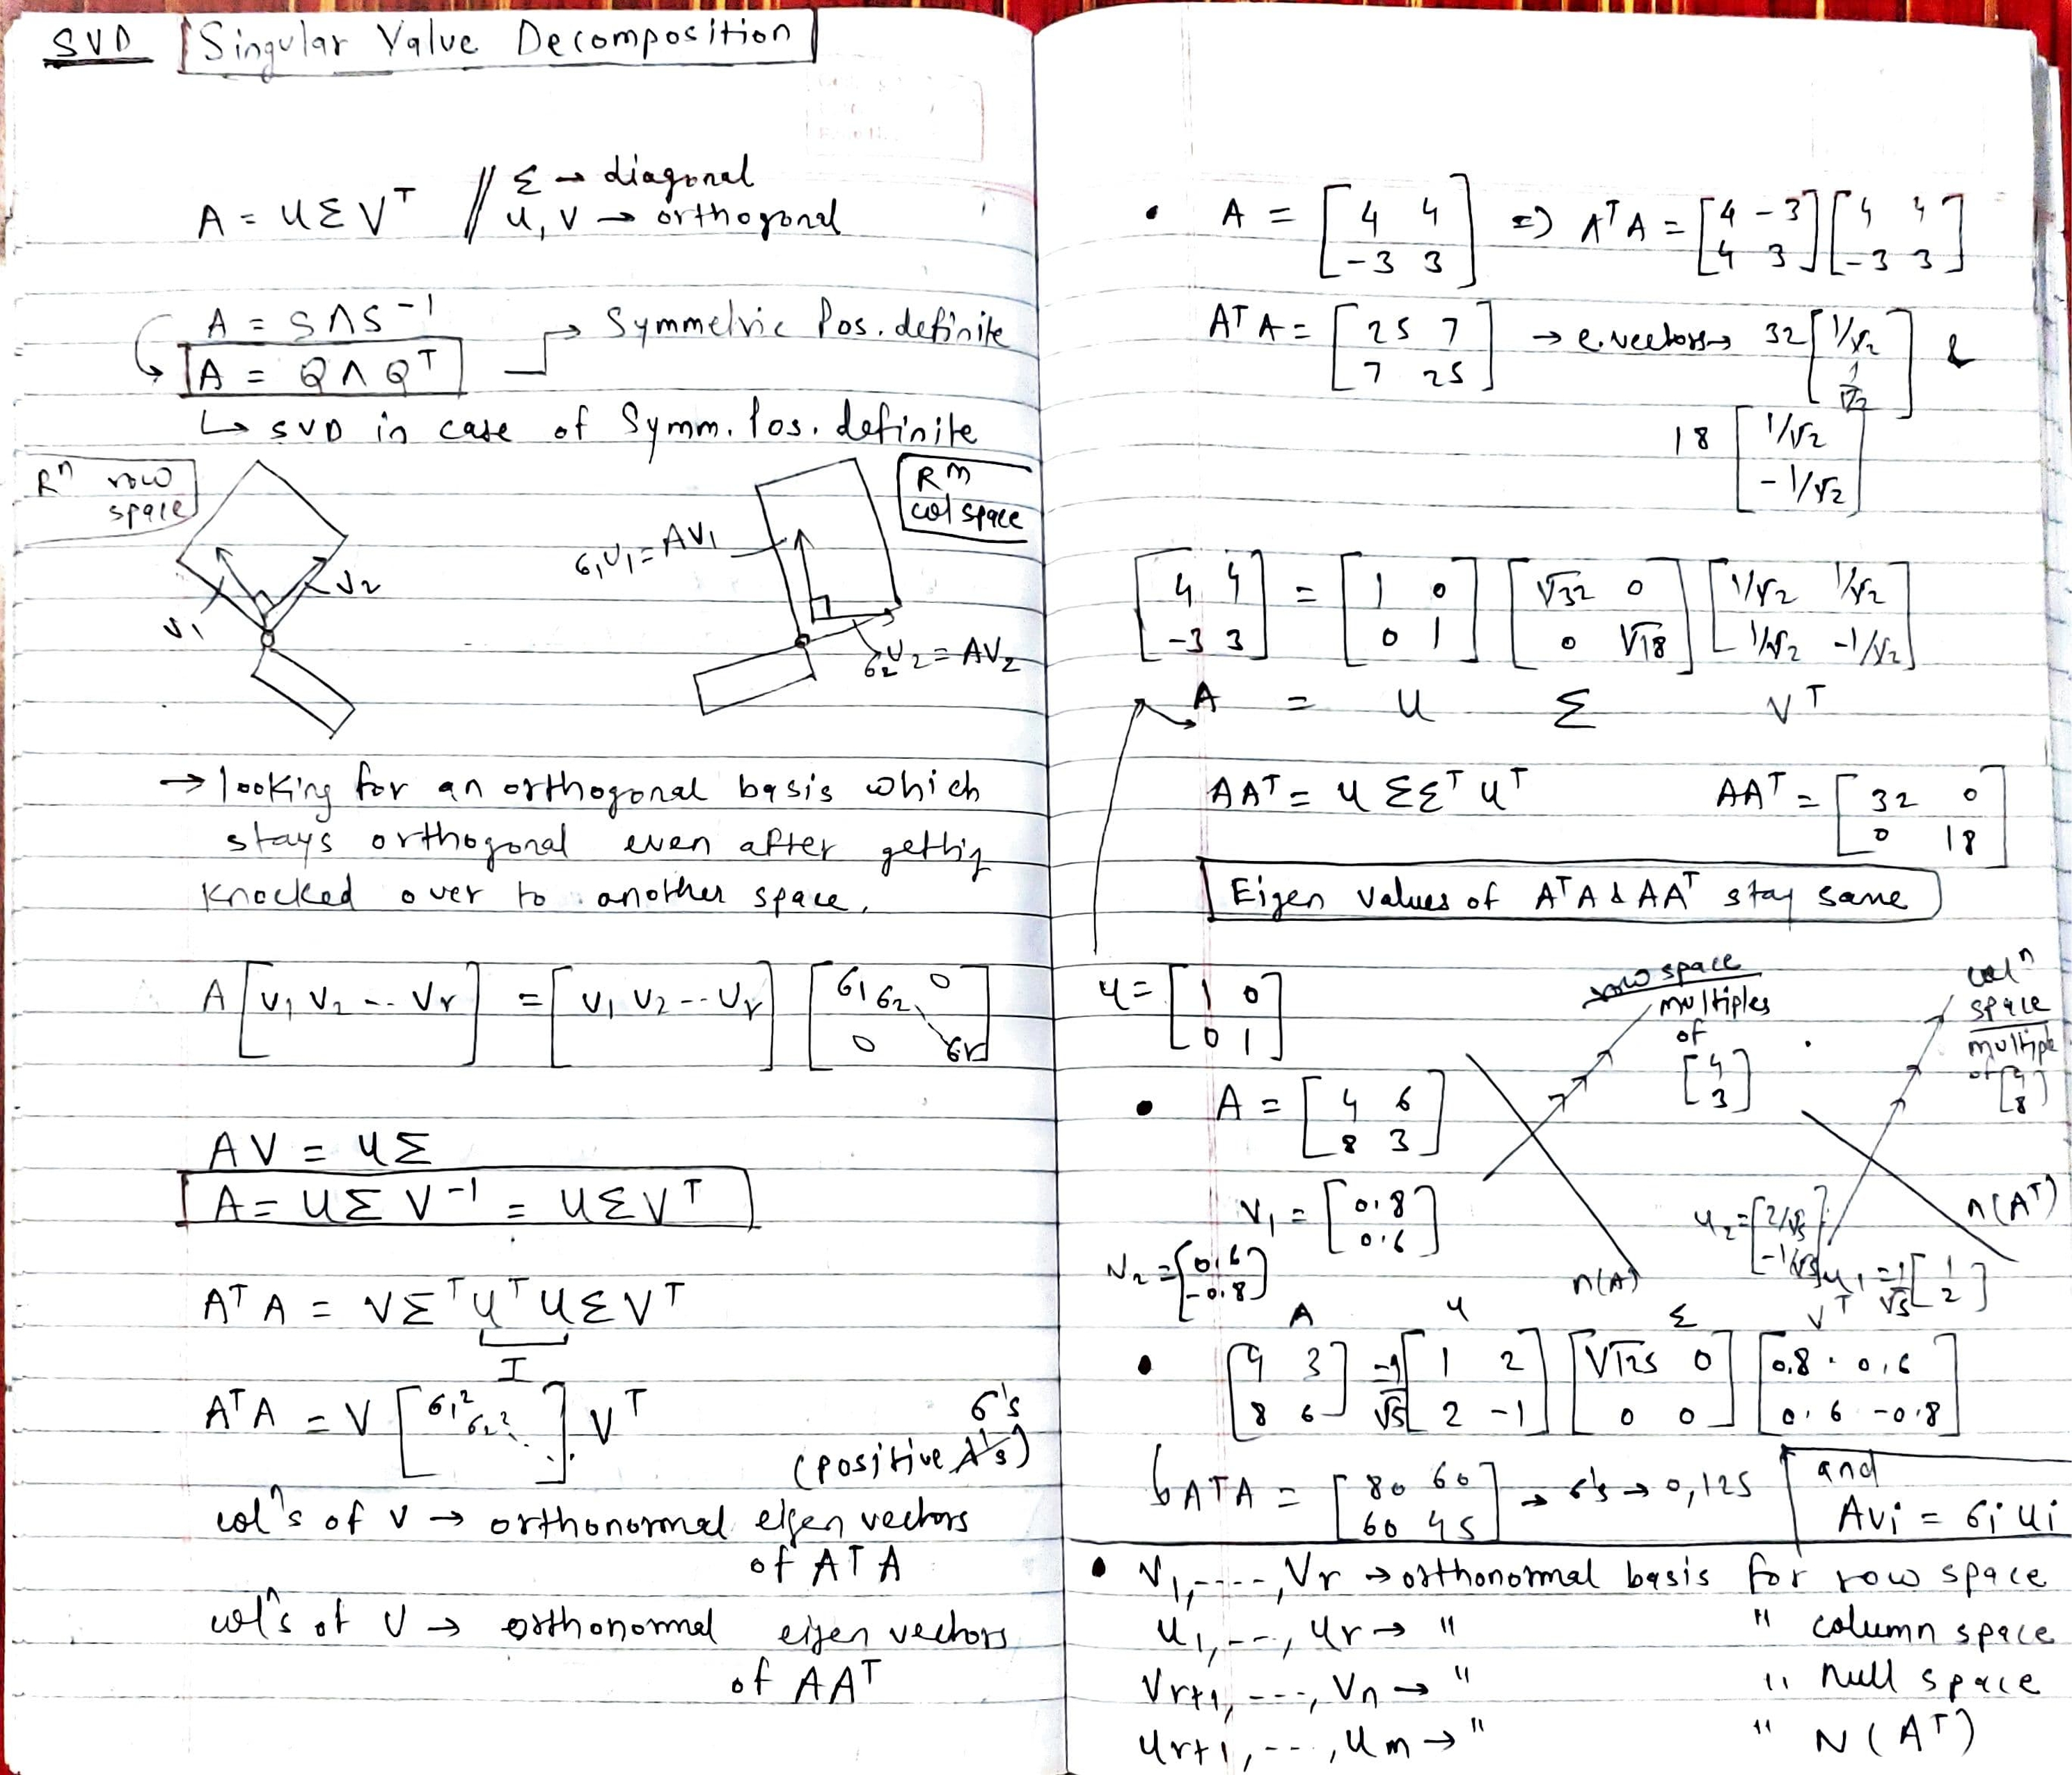 SVD Singular Value Decomposition
A = UΣV^T // Σ → diagonal
U, V → orthogonal
A = SΛS^-1
A = QΛQ^T → Symmetric Pos. definite
↳ SVD in case of Symm. Pos. definite
R^n row space
V1
V2
σ1U1 = AV1
R^m col space
σ2U2 = AV2
→ looking for an orthogonal basis which
stays orthogonal even after gettig
knocked over to another space.
A [V1 V2 -- Vr] = [U1 U2 -- Ur] [σ1 σ2 0 0 σr]
AV = UΣ
A = UΣV^-1 = UΣV^T
A^T A = VΣ^T U^T UΣV^T
I
A^T A = V [σ1^2 σ2^2 ..] V^T
σ's
(positive λ's)
col^n's of V → orthonormal eigen vectors
of A^T A
col^n's of U → orthonormal eigen vectors
of AA^T
• A = [4 4; -3 3] => A^T A = [4 -3; 4 3] [4 4; -3 3]
A^T A = [25 7; 7 25] → e.vectors → 32 [1/√2; 1/√2] &
18 [1/√2; -1/√2]
[4 4; -3 3] = [1 0; 0 1] [√32 0; 0 √18] [1/√2 1/√2; 1/√2 -1/√2]
A = U Σ V^T
AA^T = U ΣΣ^T U^T AA^T = [32 0; 0 18]
Eigen Values of A^T A & AA^T stay same
U = [1 0; 0 1]
row space
multiples of [4; 3]
col^n space
multiple of [4; 8]
• A = [4 6; 8 3]
V1 = [0.8; 0.6]
V2 = [0.6; -0.8]
n(A)
U2 = [2/√5; -1/√5]
U1 = 1/√5 [1; 2]
n(A^T)
A U Σ V^T
• [4 3; 8 6] = 1/√5 [1 2; 2 -1] [√125 0; 0 0] [0.8 0.6; 0.6 -0.8]
↳ A^T A = [80 60; 60 45] → σ's → 0, 125
and
Avi = σi ui
• V1, ----, Vr → orthonormal basis for row space
U1, ---, Ur → " " column space
Vr+1, ---, Vn → " " Null space
Ur+1, ---, Um → " " N(A^T)